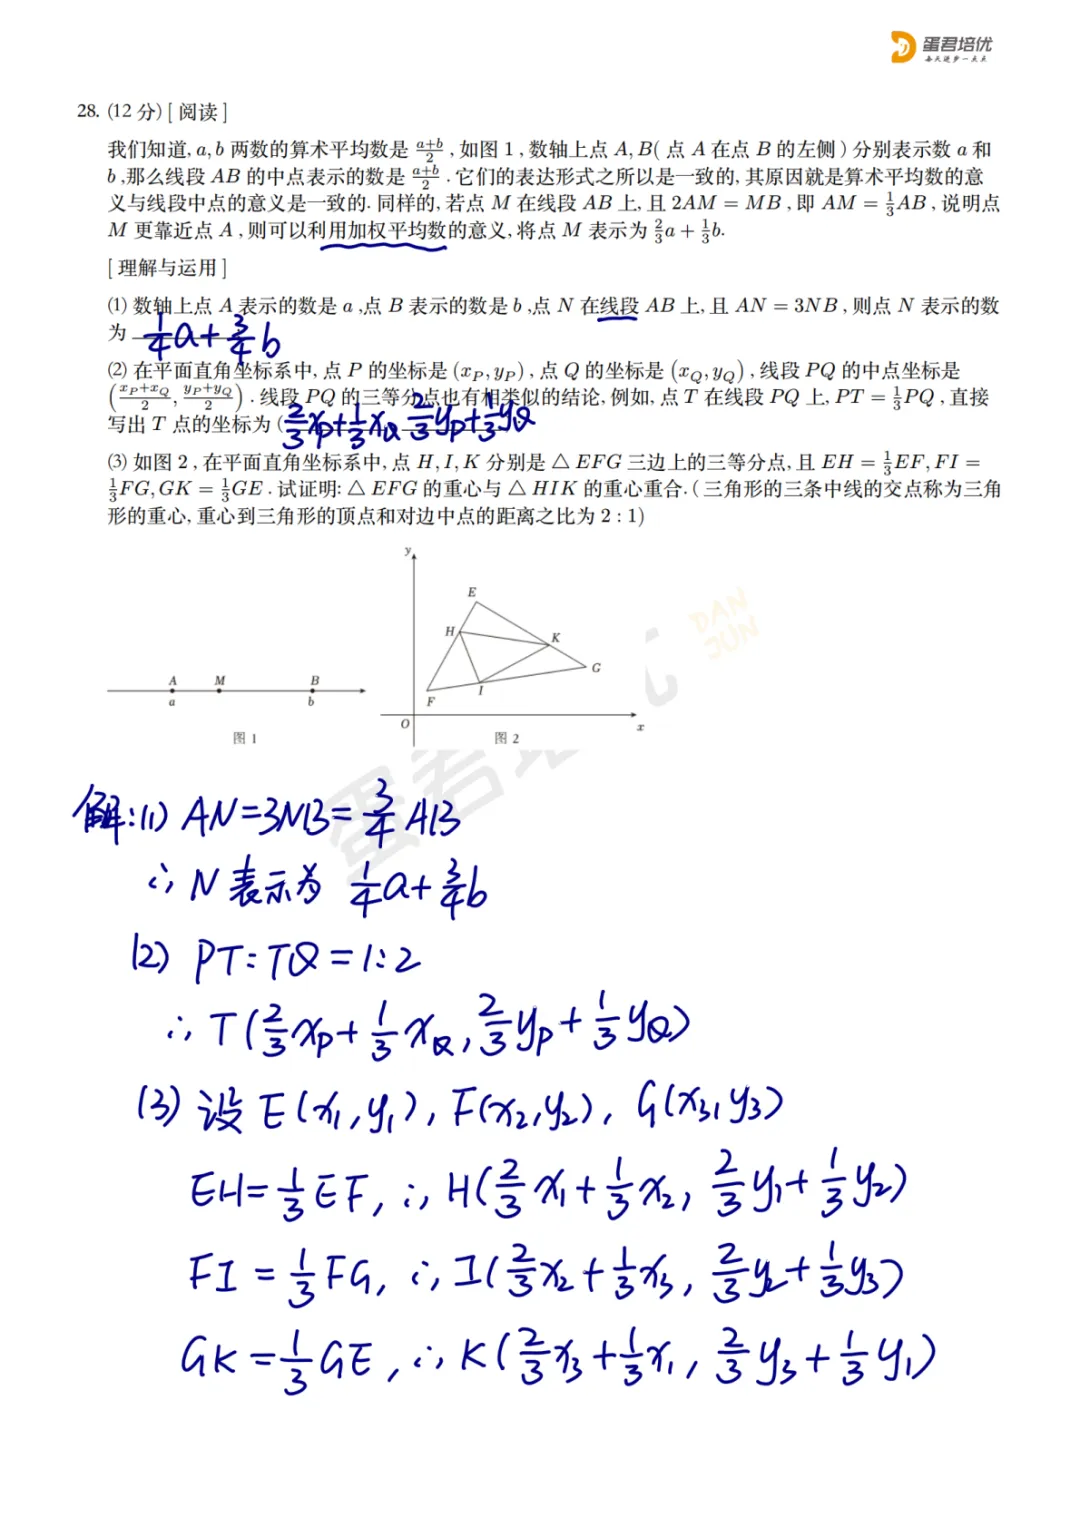 蛋君培优
每天进步一点点
28. (12 分) [ 阅读 ]
我们知道, a, b 两数的算术平均数是 \frac{a+b}{2} , 如图 1 , 数轴上点 A, B( 点 A 在点 B 的左侧 ) 分别表示数 a 和
b ,那么线段 AB 的中点表示的数是 \frac{a+b}{2} . 它们的表达形式之所以是一致的, 其原因就是算术平均数的意
义与线段中点的意义是一致的. 同样的, 若点 M 在线段 AB 上, 且 2AM = MB , 即 AM = \frac{1}{3}AB , 说明点
M 更靠近点 A , 则可以利用加权平均数的意义, 将点 M 表示为 \frac{2}{3}a + \frac{1}{3}b.
[ 理解与运用 ]
(1) 数轴上点 A 表示的数是 a ,点 B 表示的数是 b ,点 N 在线段 AB 上, 且 AN = 3NB , 则点 N 表示的数
为 \frac{1}{4}a+\frac{3}{4}b
(2) 在平面直角坐标系中, 点 P 的坐标是 (x_P, y_P) , 点 Q 的坐标是 (x_Q, y_Q) , 线段 PQ 的中点坐标是
(\frac{x_P+x_Q}{2}, \frac{y_P+y_Q}{2}) . 线段 PQ 的三等分点也有相类似的结论, 例如, 点 T 在线段 PQ 上, PT = \frac{1}{3}PQ , 直接
写出 T 点的坐标为 (\frac{2}{3}x_P+\frac{1}{3}x_Q \frac{2}{3}y_P+\frac{1}{3}y_Q
(3) 如图 2 , 在平面直角坐标系中, 点 H, I, K 分别是 △ EFG 三边上的三等分点, 且 EH = \frac{1}{3}EF, FI =
\frac{1}{3}FG, GK = \frac{1}{3}GE . 试证明: △ EFG 的重心与 △ HIK 的重心重合. ( 三角形的三条中线的交点称为三角
形的重心, 重心到三角形的顶点和对边中点的距离之比为 2 : 1)
A M B
a b
图 1
y
E
H
K
G
I
F
O
x
图 2
DAN
JUN
蛋君培
解:(1) AN=3NB=\frac{3}{4}AB
∴ N 表示为 \frac{1}{4}a+\frac{3}{4}b
(2) PT:TQ=1:2
∴ T(\frac{2}{3}x_P+\frac{1}{3}x_Q, \frac{2}{3}y_P+\frac{1}{3}y_Q)
(3) 设 E(x_1,y_1), F(x_2,y_2), G(x_3,y_3)
EH=\frac{1}{3}EF, ∴ H(\frac{2}{3}x_1+\frac{1}{3}x_2, \frac{2}{3}y_1+\frac{1}{3}y_2)
FI=\frac{1}{3}FG, ∴ I(\frac{2}{3}x_2+\frac{1}{3}x_3, \frac{2}{3}y_2+\frac{1}{3}y_3)
GK=\frac{1}{3}GE, ∴ K(\frac{2}{3}x_3+\frac{1}{3}x_1, \frac{2}{3}y_3+\frac{1}{3}y_1)